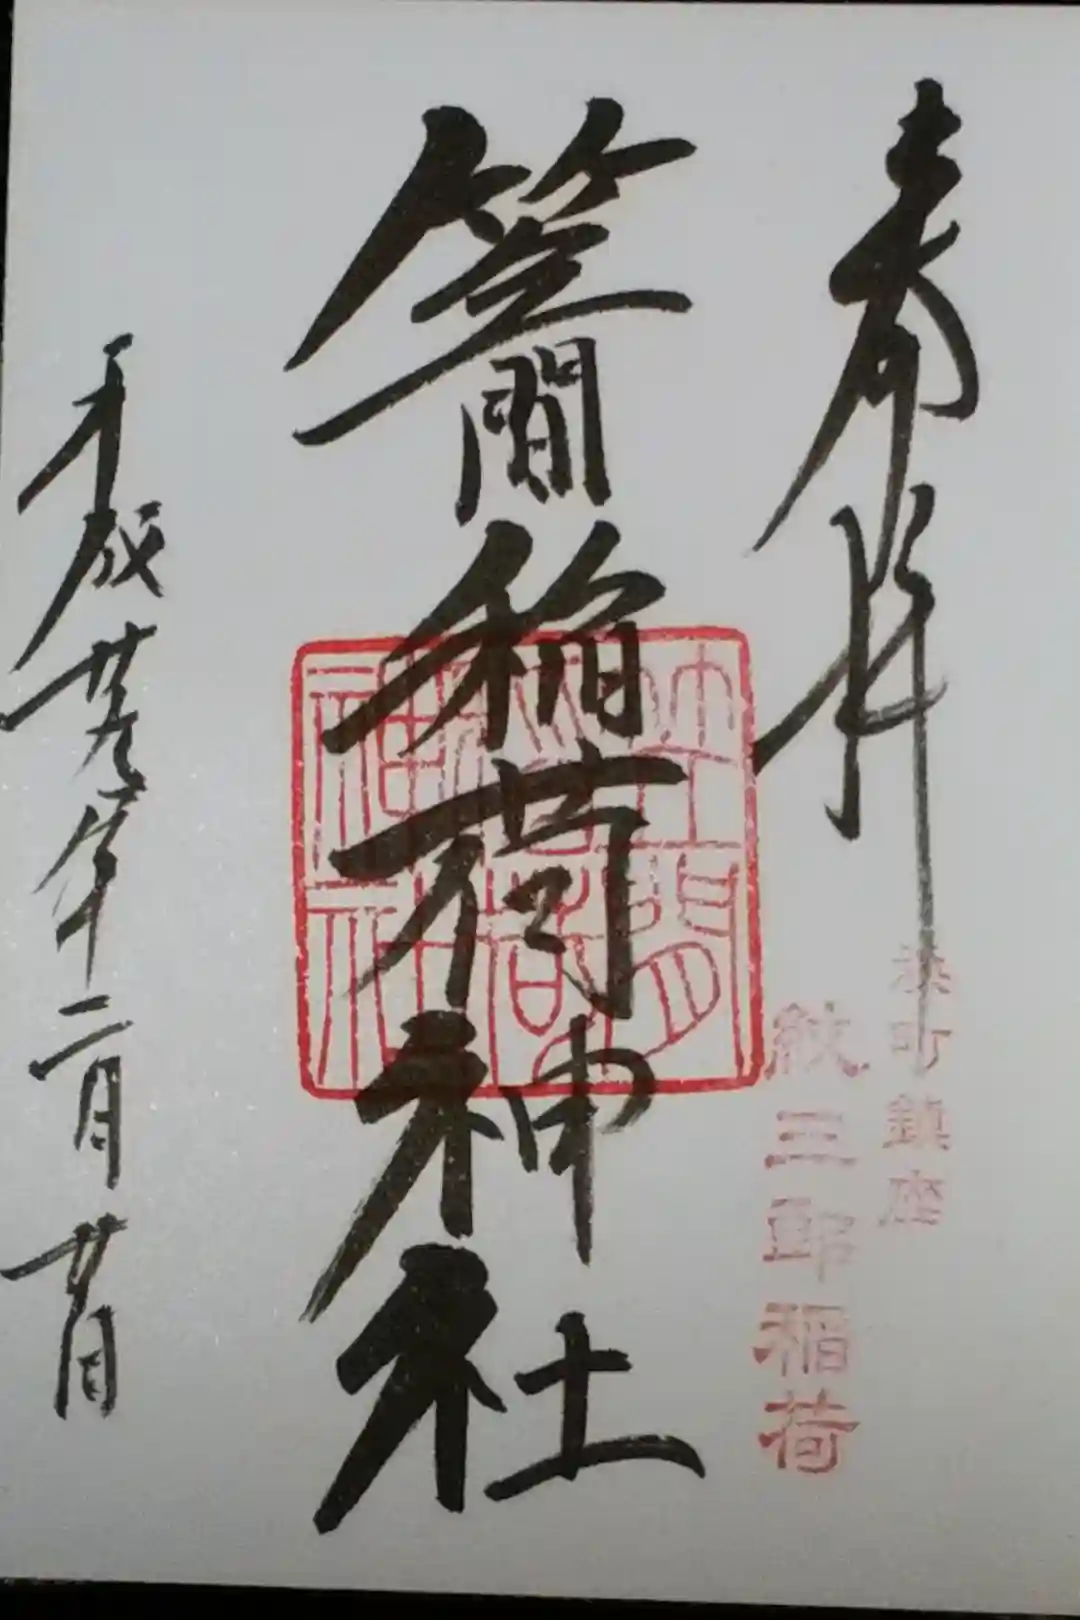 奉拝
濱町鎮座
紋三郎稲荷
笠間稲荷神社
笠間稲荷神社
平成廿九年二月廿日